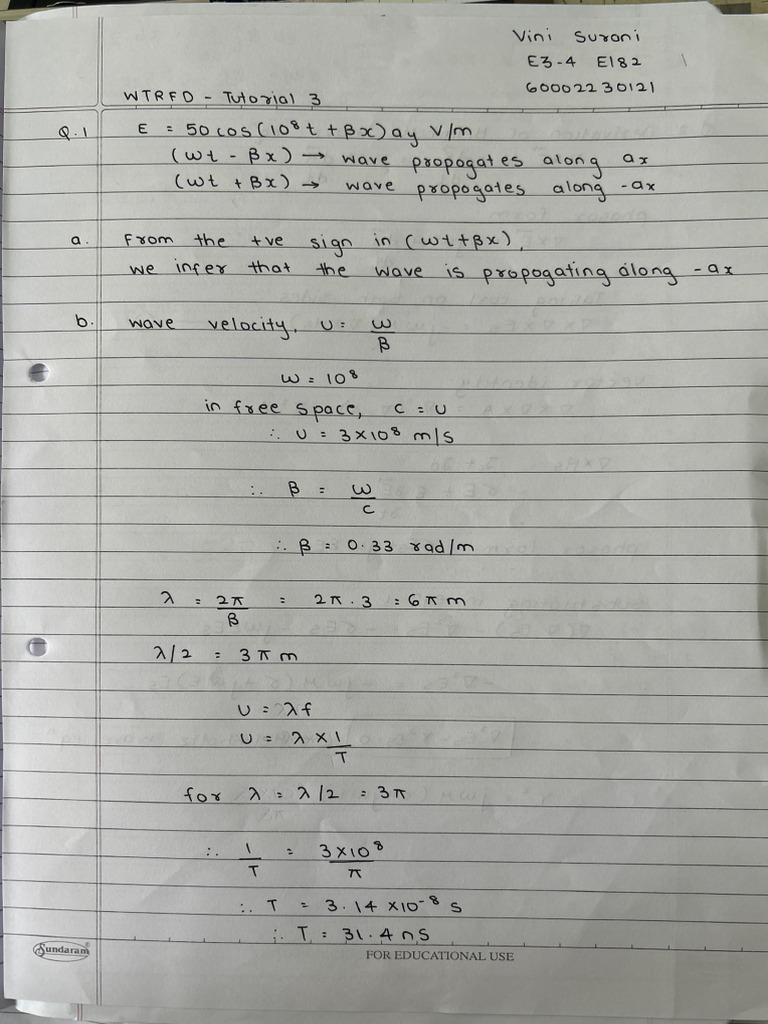 Vini Surani
E3-4 E182
60002230121
WTRFD - Tutorial 3
Q.1 E = 50 cos(10⁸t + βx) ay V/m
(ωt - βx) → wave propogates along ax
(ωt + βx) → wave propogates along -ax
a. From the +ve sign in (ωt+βx),
we infer that the wave is propogating along -ax
b. wave velocity, u = ω/β
ω = 10⁸
in free space, c = u
∴ u = 3×10⁸ m/s
∴ β = ω/c
∴ β = 0.33 rad/m
λ = 2π/β = 2π.3 = 6π m
λ/2 = 3π m
u = λf
u = λ × 1/T
for λ = λ/2 = 3π
∴ 1/T = 3×10⁸/π
∴ T = 3.14 ×10⁻⁸ s
∴ T = 31.4 ns
Sundaram®
FOR EDUCATIONAL USE